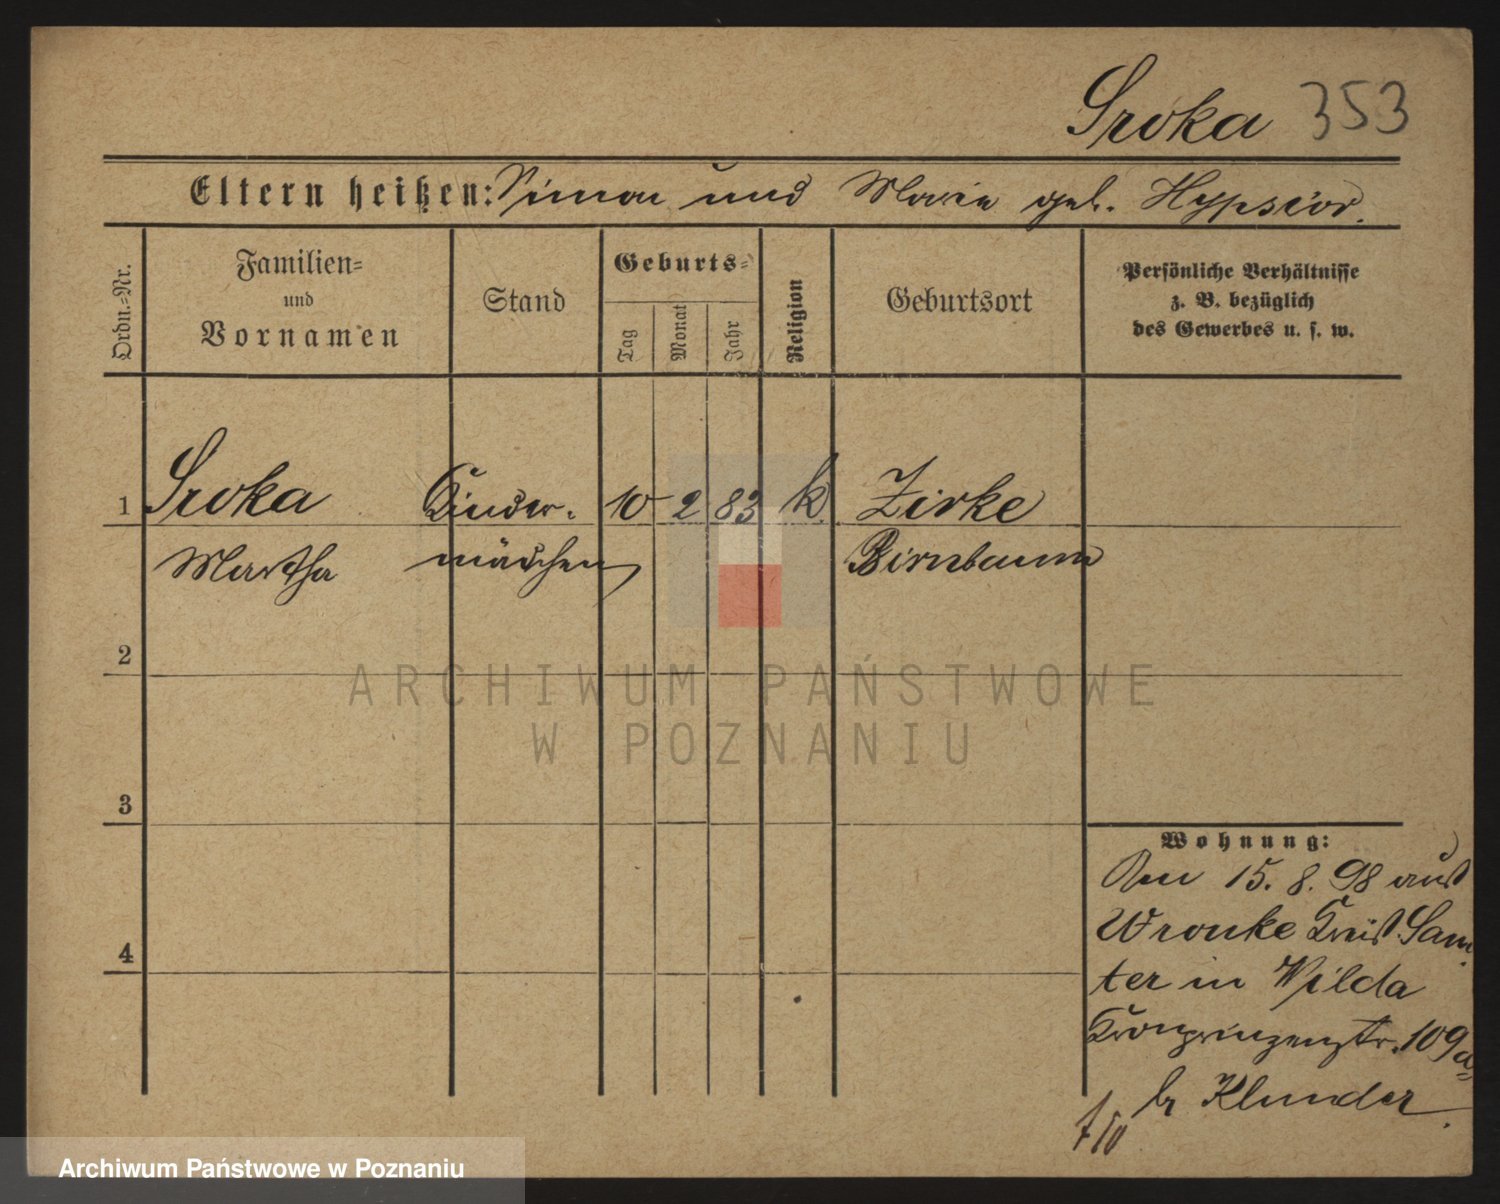 Sroka 353
Eltern heißen: Simon und Marie geb. Hypscior.
Ordn.-Nr.
Familien-
und
Vornamen
Stand
Geburts-
Tag
Monat
Jahr
Religion
Geburtsort
Persönliche Verhältnisse
z. B. bezüglich
des Gewerbes u. s. w.
1 Sroka Kinder- 10 2 83 k Zirke
Martha mädchen Birnbaum
2
ARCHIWUM PAŃSTWOWE
W POZNANIU
3
Wohnung:
Am 15. 8. 98 aus
Wronke Kreis Sam-
4
ter in Wilda
Kronprinzenstr. 109a
b Klunder.
Archiwum Państwowe w Poznaniu